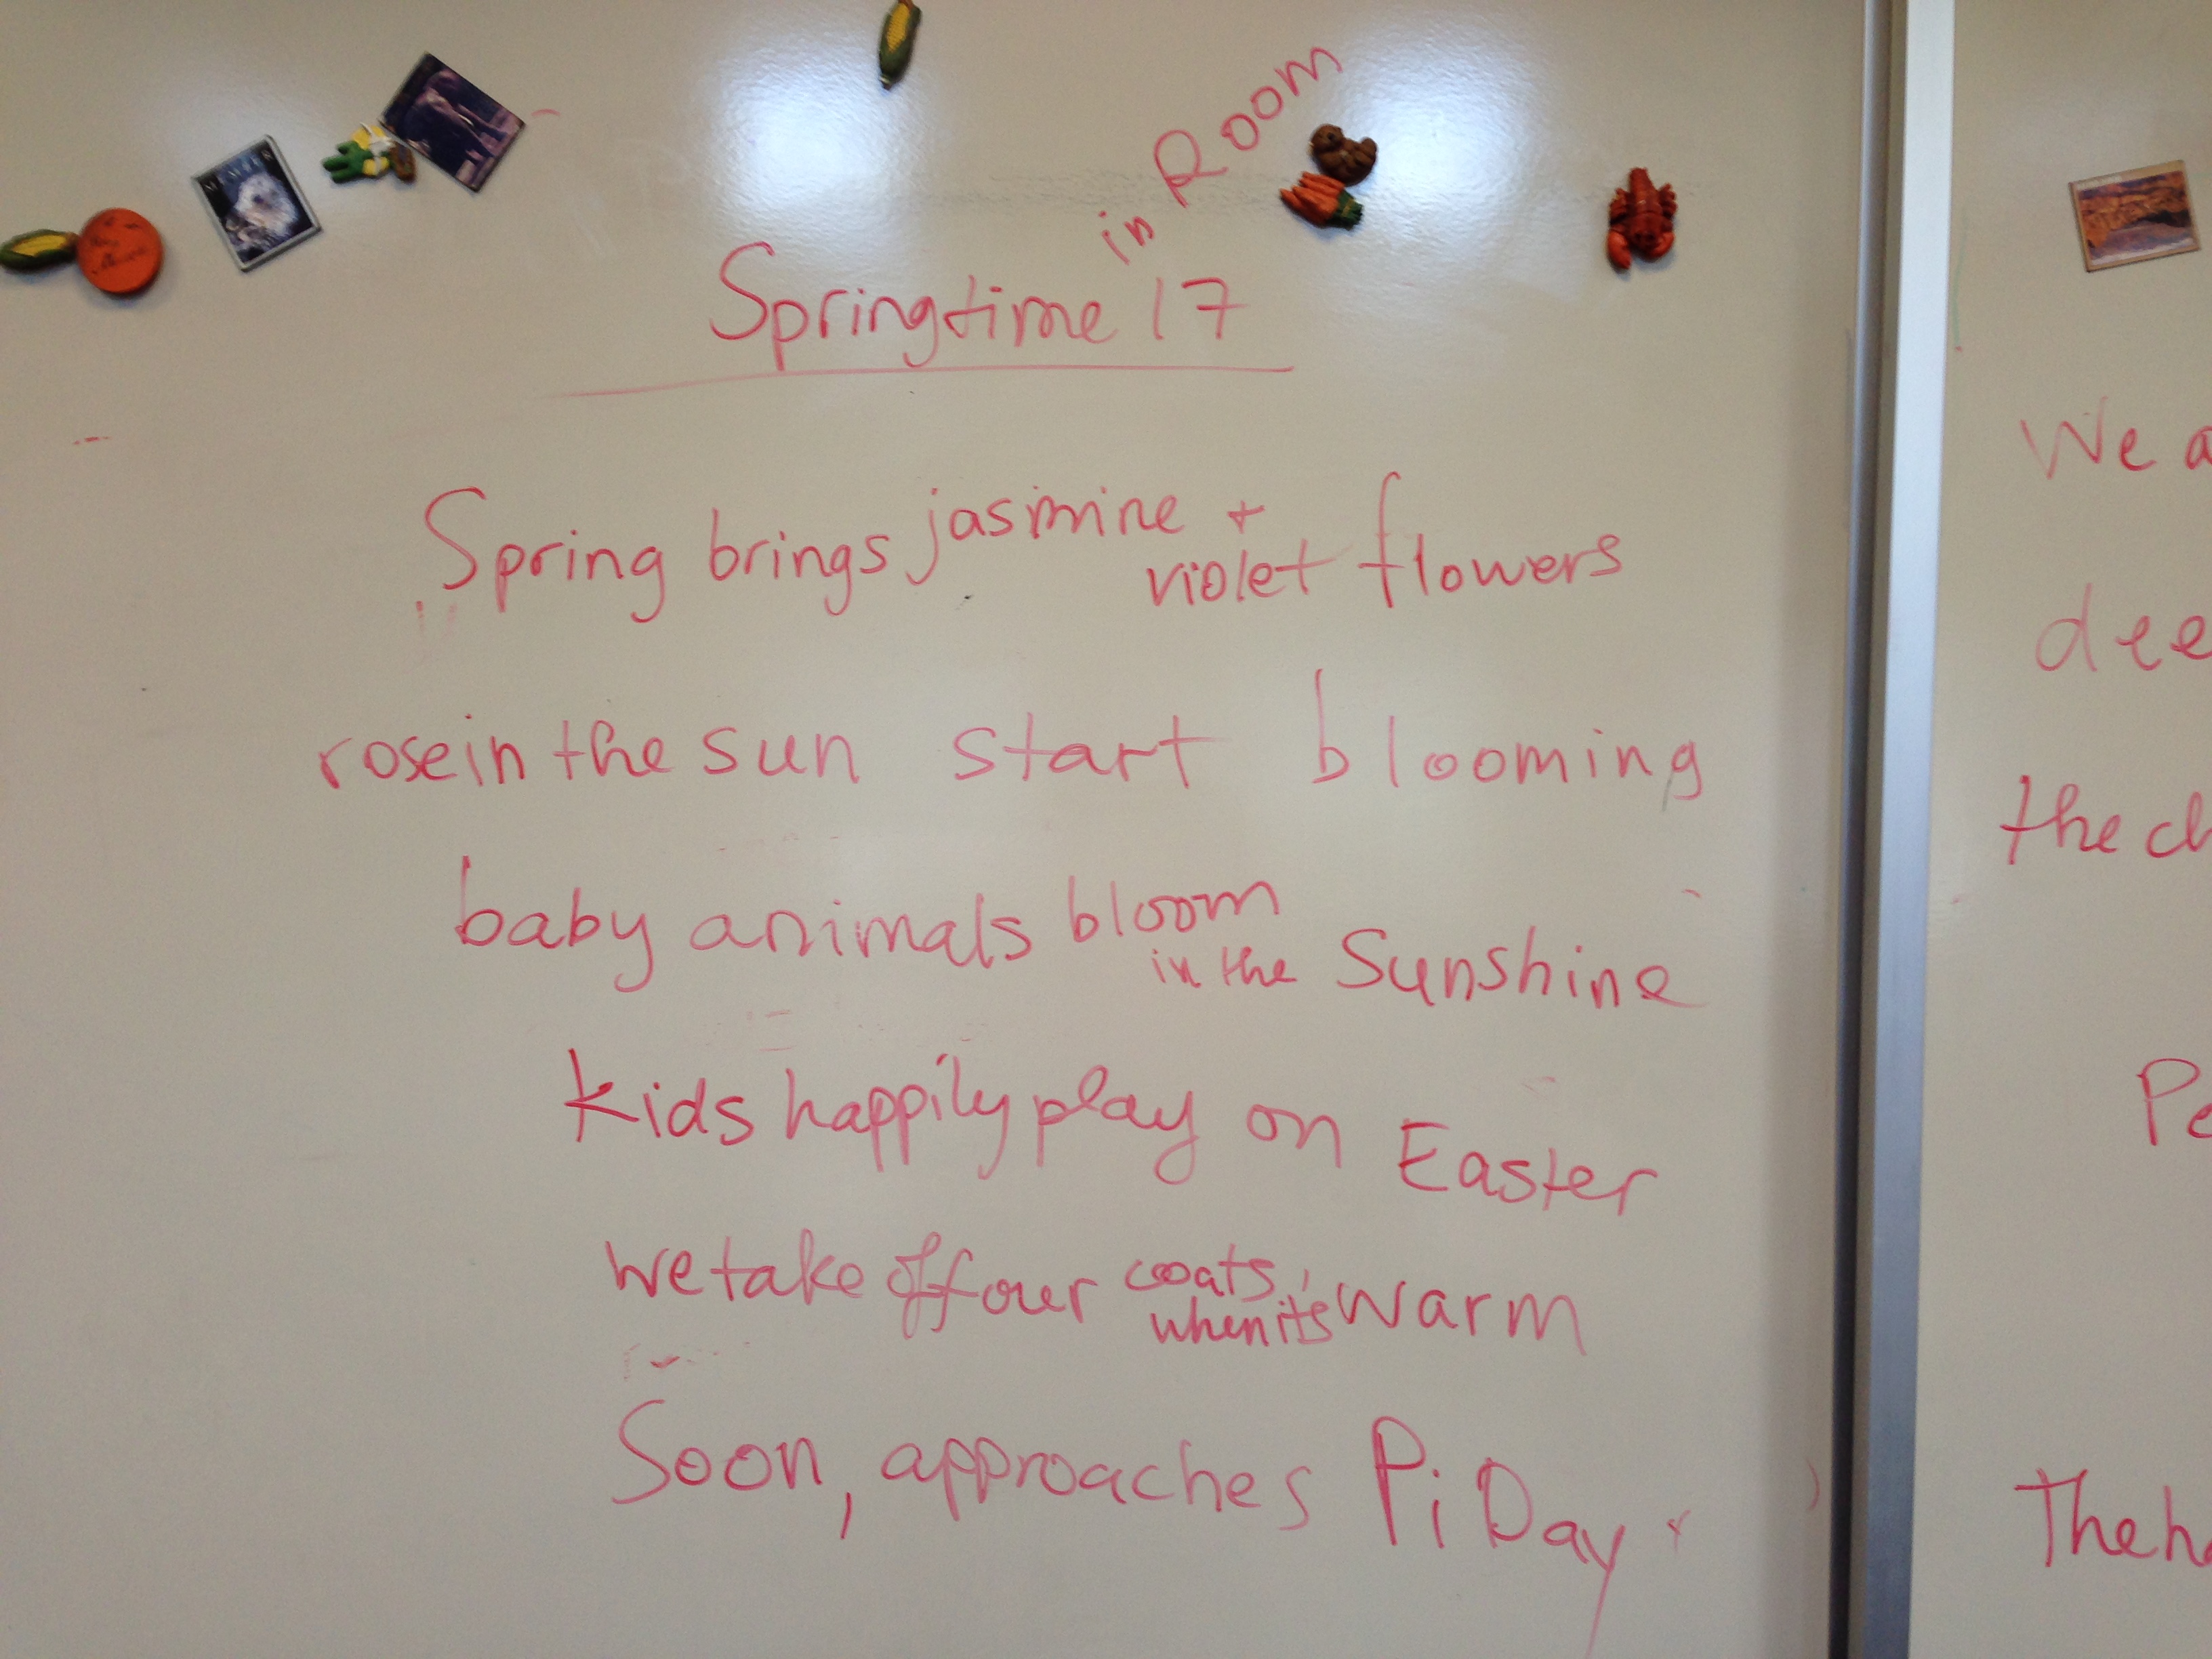 Springtime in Room 17
Spring brings jasmine + violet flowers
rose in the sun start blooming
baby animals bloom in the Sunshine
kids happily play on Easter
We take off our coats when it's warm
Soon, approaches Pi Day
We a
dee
the ch
Pe
The ha